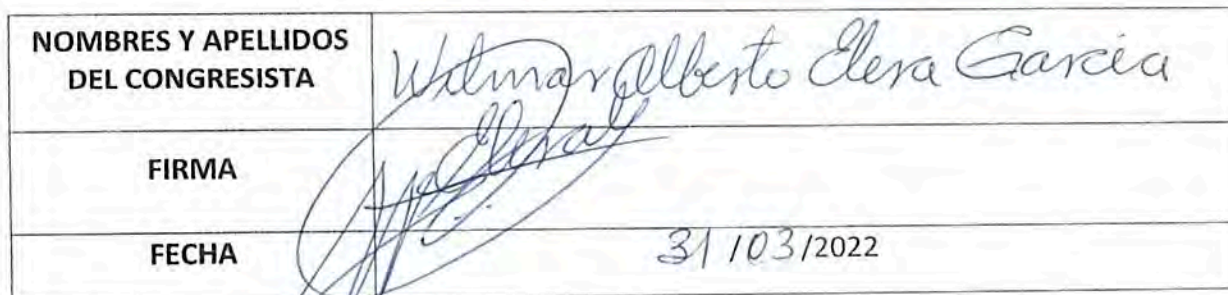 NOMBRES Y APELLIDOS
DEL CONGRESISTA
Wilmar Alberto Elera Garcia
FIRMA
Elera
FECHA
31/03/2022